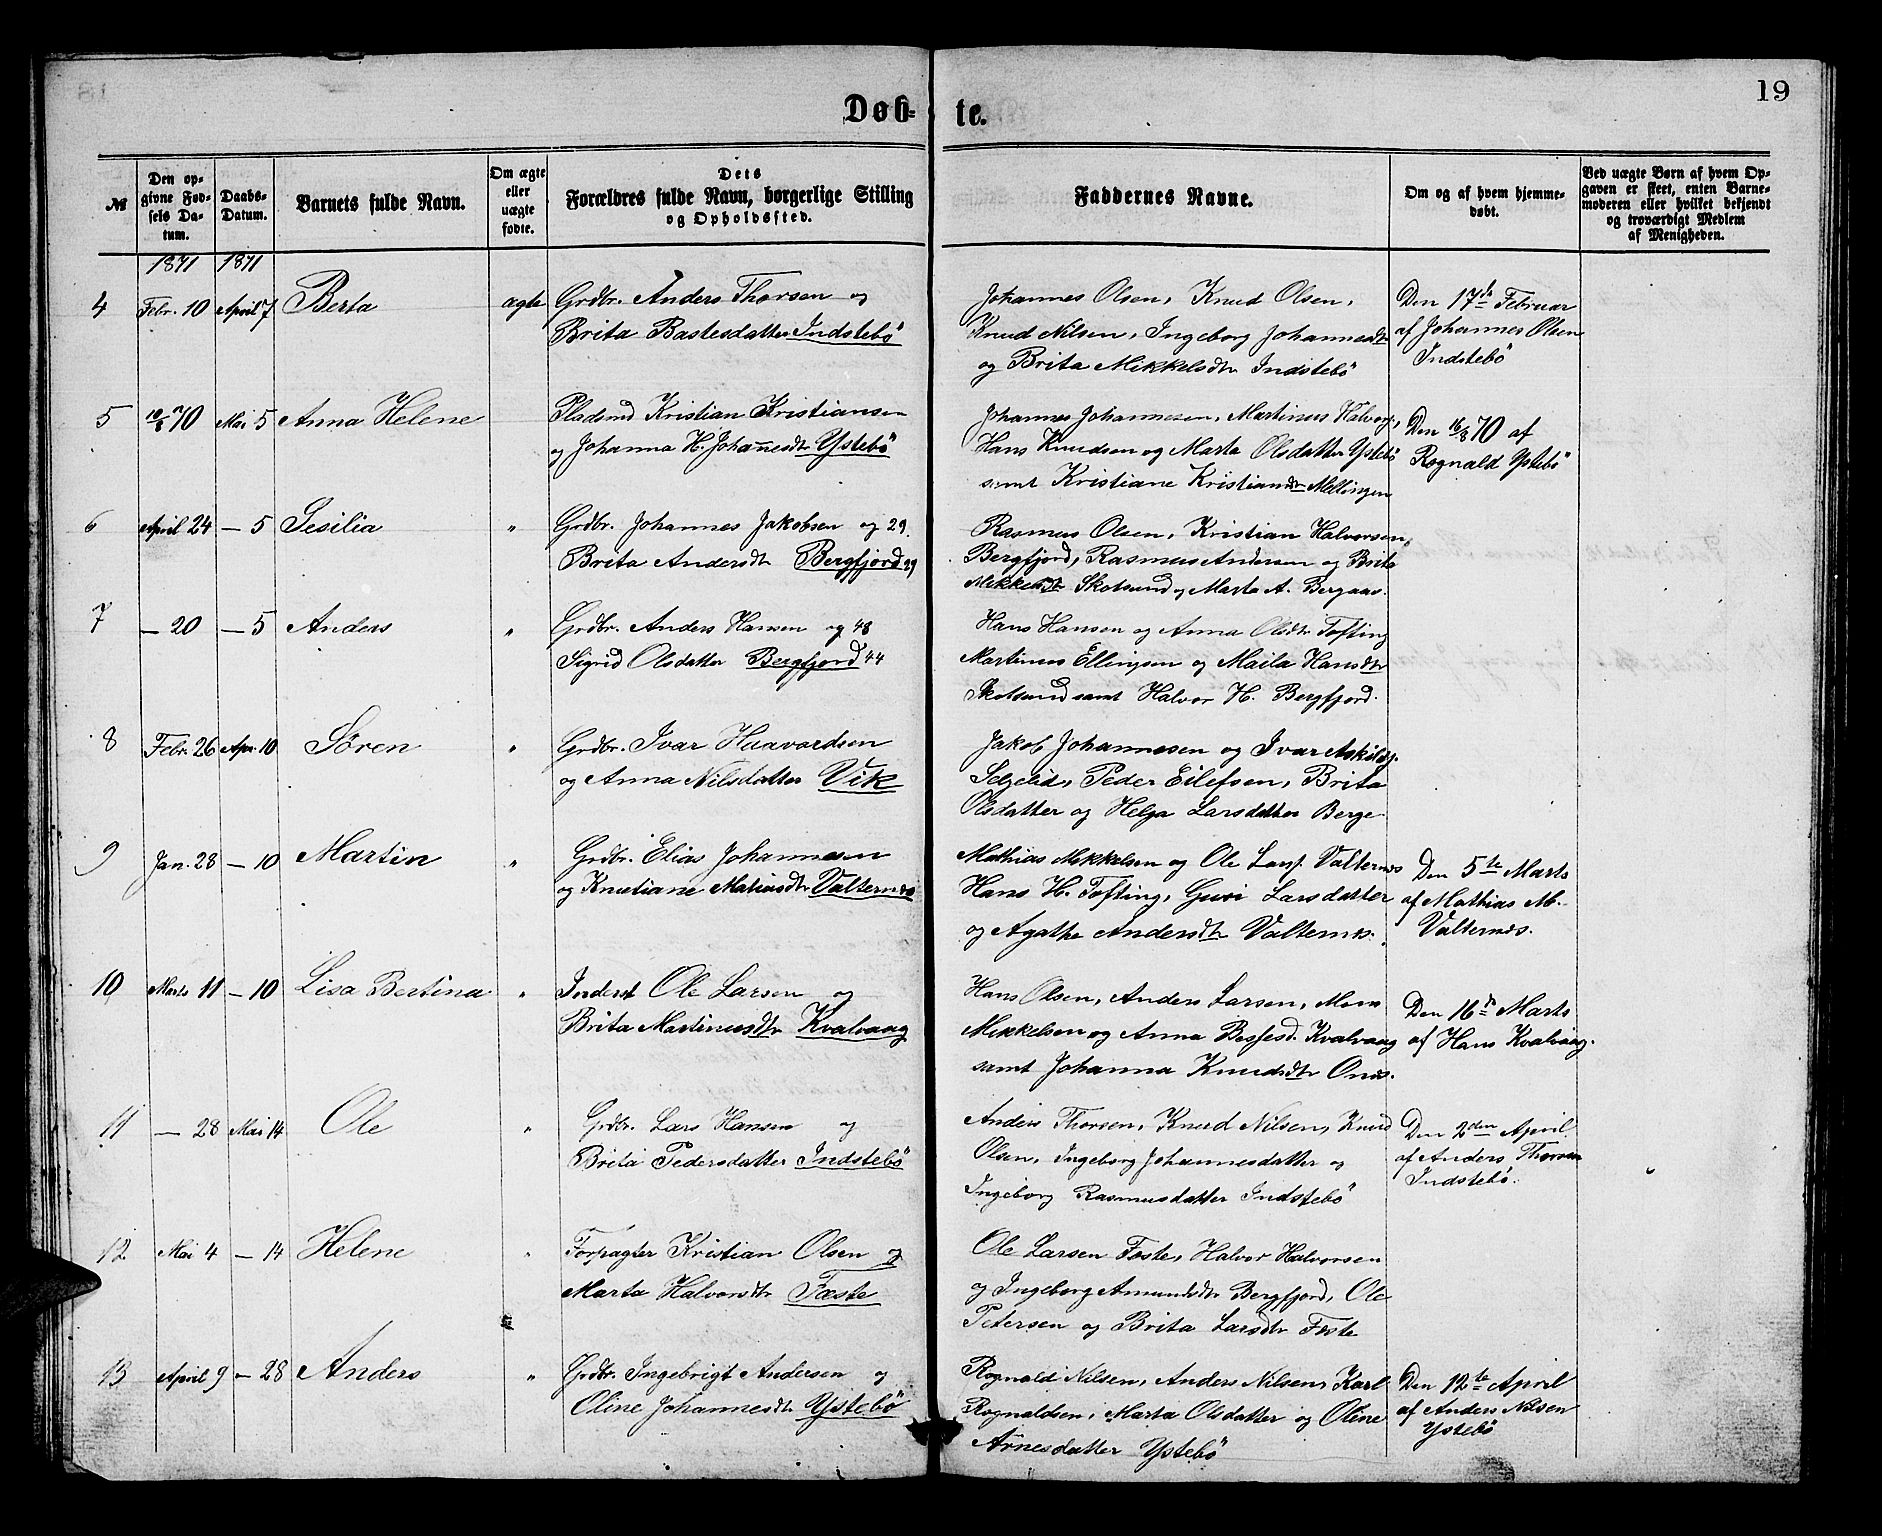 19
Døb- te.
№ Den opgivne Fødsels Datum. Daabs-Datum. Barnets fulde Navn. Om ægte eller uægte fødte. Dets Forældres fulde Navn, borgerlige Stilling og Opholdssted. Faddernes Navne. Om og af hvem hjemmedøbt. Ved uægte Børn af hvem Opgaven er skeet, enten Barnemoderen eller hvilket bekjendt og troværdigt Medlem af Menigheden.
1871 1871
4 Febr. 10 April 7 Berta ægte Grdbr. Anders Thorsen og
Brita Bastesdatter Indstebö
Johannes Olsen, Knud Olsen,
Knud Nilsen, Ingeborg Johannesdtr
og Brita Mikkelsdtr Indstebö
Den 17de Februar
af Johannes Olsen
Indstebö
5 10/8 70 Mai 5 Anna Helene Pladsmd Kristian Kristiansen
og Johanna H. Johannesdtr Ystebö
Johannes Johannesen, Martinus Halvors.,
Hans Knudsen og Marta Olsdatter Ystebö
samt Kristiane Kristiansdtr Mellingen
Den 16/8 70 af
Rognald Ystebö
6 April 24 – 5 Sesilia " Grdbr. Johannes Jakobsen og 29
Brita Andersdtr Bergfjord 29
Rasmus Olsen, Kristian Halvorsen,
Bergfjord, Rasmus Andersen og Brita
Mikkelsdtr Skotsund og Marta A. Bergaas.
7 – 20 – 5 Anders " Grdbr. Anders Hansen og 48
Sigrid Olsdatter Bergfjord 44
Hans Hansen og Anna Olsdtr Tofting
Martinus Ellingsen og Maila Hansdtr
Skotsund samt Halvor H. Bergfjord.
8 Febr. 26 Apr. 10 Sören " Grdbr. Ivar Haavardsen
og Anna Nilsdatter Vik
Jakob Johannesen og Ivar Askilds.
Selzelid, Peder Eilefsen, Brita
Olsdatter og Helga Larsdatter Berge
9 Jan. 28 – 10 Martin " Grdbr. Elias Johannesen
og Knutiane Matiasdtr Valternæs
Mathias Mikkelsen og Ole Lars. Valternæs
Hans H. Tofting, Guri Larsdatter
og Agathe Andersdtr Valternæs.
Den 5te Marts
af Mathias M.
Valternæs.
10 Marts 11 – 10 Lisa Bertina " Inderst Ole Larsen og
Brita Martinusdtr Kvalvaag
Hans Olsen, Anders Larsen, Mons
Mikkelsen og Anna Besfesd. Kvalvaag
samt Johanna Knudsdtr Onæs.
Den 16de Marts
af Hans Kvalvaag.
11 – 28 Mai 14 Ole " Grdbr. Lars Hansen og
Brita Pedersdatter Indstebö
Anders Thorsen, Knud Nilsen, Knud
Olsen, Ingeborg Johannesdatter og
Ingeborg Rasmusdatter Indstebö
Den 2den April
af Anders Thorsen
Indstebö.
12 Mai 4 – 14 Helene " Forpagter Kristian Olsen og
Marta Halvorsdtr Fæste
Ole Larsen Fæste, Halvor Halvorsen
og Ingeborg Amundsdtr Bergfjord, Ole
Petersen og Brita Larsdtr Fæste
13 April 9 – 28 Anders " Grdbr. Ingebrigt Andersen og
Oline Johannesdtr Ystebö
Rognald Nilsen, Anders Nilsen, Karl
Rognaldsen, Marta Olsdatter og Oline
Arnesdatter Ystebö
Den 12te April
af Anders Nilsen
Ystebö